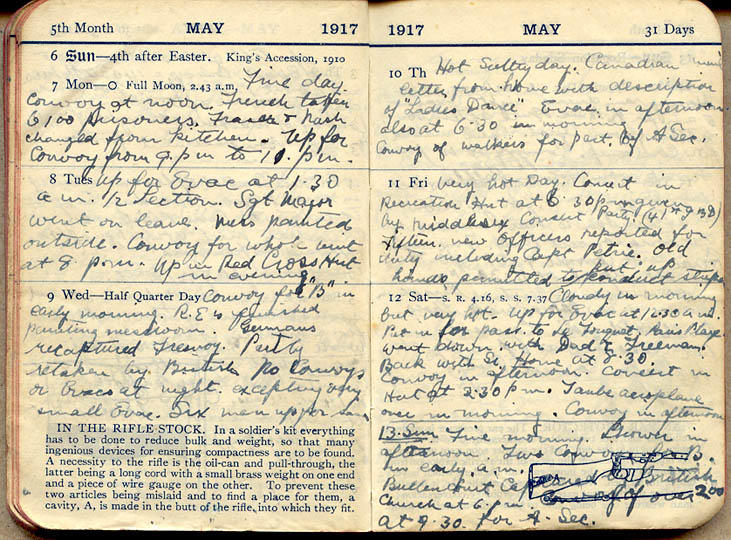 5th Month MAY 1917
6 Sun—4th after Easter. King's Accession, 1910
7 Mon—O Full Moon, 2.43 a.m. Fine day.
Convoy at noon. French taken
6100 prisoners. Fraser & Nash
changed from kitchen. Up for
Convoy from 9 p.m to 11 p.m.
8 Tues Up for Evac at 1.30
a.m. ½ section. Sgt Major
went on leave. Mess painted
outside. Convoy for whole unit
at 8 p.m. Up in Red Cross Hut
in evening
9 Wed—Half Quarter Day Convoy for "B" in
early morning. R.E's finished
painting messroom. Germans
recaptured Fresnoy. Partly
retaken by British No Convoys
or Evacs at night. excepting very
small Evac. Six men up per
IN THE RIFLE STOCK. In a soldier's kit everything
has to be done to reduce bulk and weight, so that many
ingenious devices for ensuring compactness are to be found.
A necessity to the rifle is the oil-can and pull-through, the
latter being a long cord with a small brass weight on one end
and a piece of wire gauge on the other. To prevent these
two articles being mislaid and to find a place for them, a
cavity, A, is made in the butt of the rifle, into which they fit.
1917 MAY 31 Days
10 Th Hot Sultry day. Canadian mail
letter from home with description
of "Ladies Dance" Evac in afternoon
also at 6.30 in morning
Convoy of walkers for part. of A Sec.
11 Fri Very hot Day. Concert in
Recreation Hut at 6.30 p.m given
by Middlesex Concert Party.
Fifteen new Officers reported for
duty including Capt Petrie. Old
hands permitted to put up conduct stripe
12 Sat—S. R. 4.16, S. S. 7.37 Cloudy in morning
but very hot. Up for Evac at 12.30 a.m.
Put in for pass. to Le Touquet, Paris Plage
went down with Dad & Freeman.
Back with Sgt Home at 8.30.
Convoy in afternoon. Concert in
Hut at 2.30 p.m. Taube aeroplane
over in morning. Convoy in afternoon
13. Sun Fine morning. Shower in
afternoon. Two Convoys B.
in early a.m.
Bullencourt Captured by British
Church at 6 p.m. Convoy of over 200
at 9.30. for A. Sec.
A